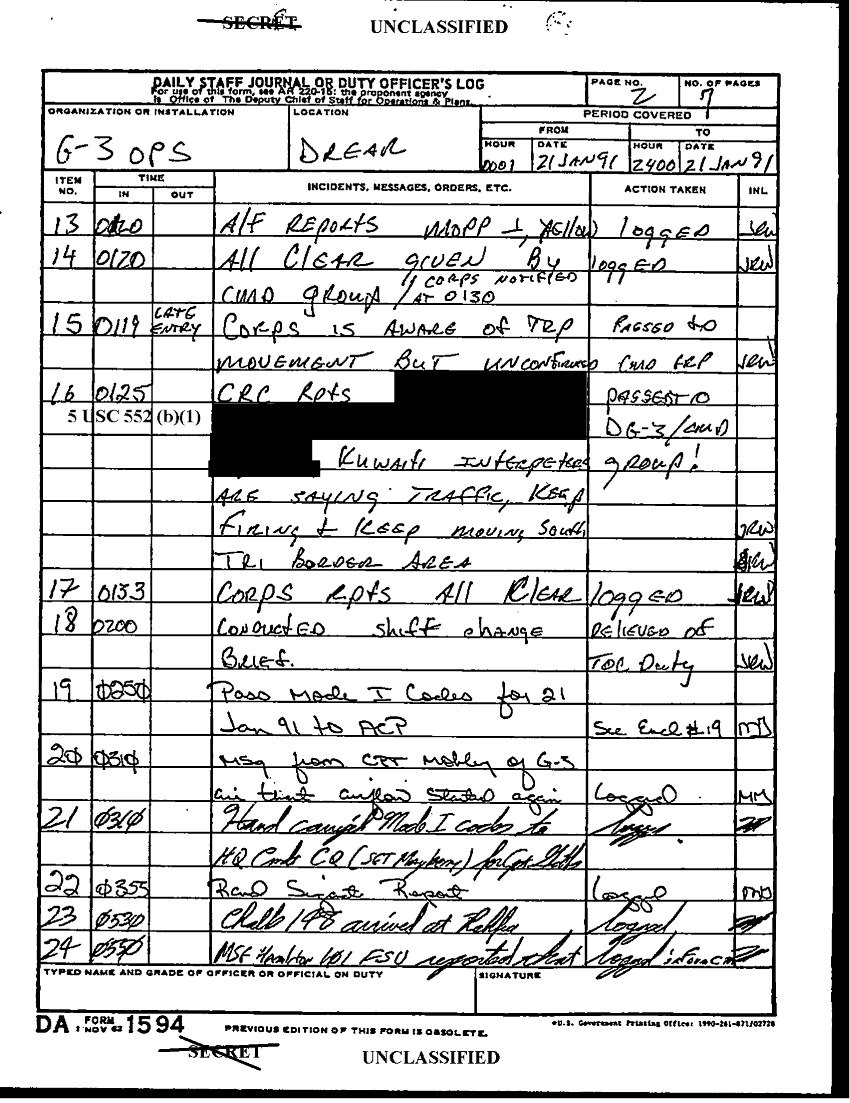 SECRET UNCLASSIFIED
DAILY STAFF JOURNAL OR DUTY OFFICER'S LOG
For use of this form, see AR 220-15; the proponent agency
is Office of The Deputy Chief of Staff for Operations & Plans.
PAGE NO. 2
NO. OF PAGES 7
ORGANIZATION OR INSTALLATION
G-3 OPS
LOCATION
DREAR
PERIOD COVERED
FROM TO
HOUR DATE HOUR DATE
0001 21 JAN 91 2400 21 JAN 91
ITEM NO. TIME IN OUT INCIDENTS, MESSAGES, ORDERS, ETC. ACTION TAKEN INL
13 A/F REPORTS MOPP logged JRW
14 0120 All Clear given By logged JRW
CMD group // CORPS NOTIFIED AT 0130
15 0119 LATE ENTRY CORPS IS AWARE OF TRP PASSED to
MOVEMENT BUT UNCONFIRMED CMD GRP JRW
16 0125 CRC Rpts PASSED TO
5 USC 552 (b)(1) DG-3/CMD
KUWAITI INTERPETERS group!
ARE SAYING TRAFFIC, KEEP
FIRING & KEEP MOVING South JRW
TRI BORDER AREA JRW
17 0133 CORPS Rpts All Clear loggED JRW
18 0200 CONDUCTED shift change RELIEVED of
BRIEF. TOC Duty JRW
19 0250 Pass Mode I Codes for 21
Jan 91 to ACP See Encl #19
20 0310 Msg from CPT Mobley of G-3
air that airflow started again Logged MM
21 0310 Hand carried Mode I codes to
HQ Cmdt CQ (SGT Mayberry) for Cpt
22 0355 Logged
23 0530 Chalk 148 arrived at Rafha logged
24 0550 MSG Hamilton ESU reported that logged
TYPED NAME AND GRADE OF OFFICER OR OFFICIAL ON DUTY SIGNATURE
DA FORM 1 NOV 62 1594 PREVIOUS EDITION OF THIS FORM IS OBSOLETE. *U.S. Government Printing Office: 1990-261-871/02720
SECRET UNCLASSIFIED